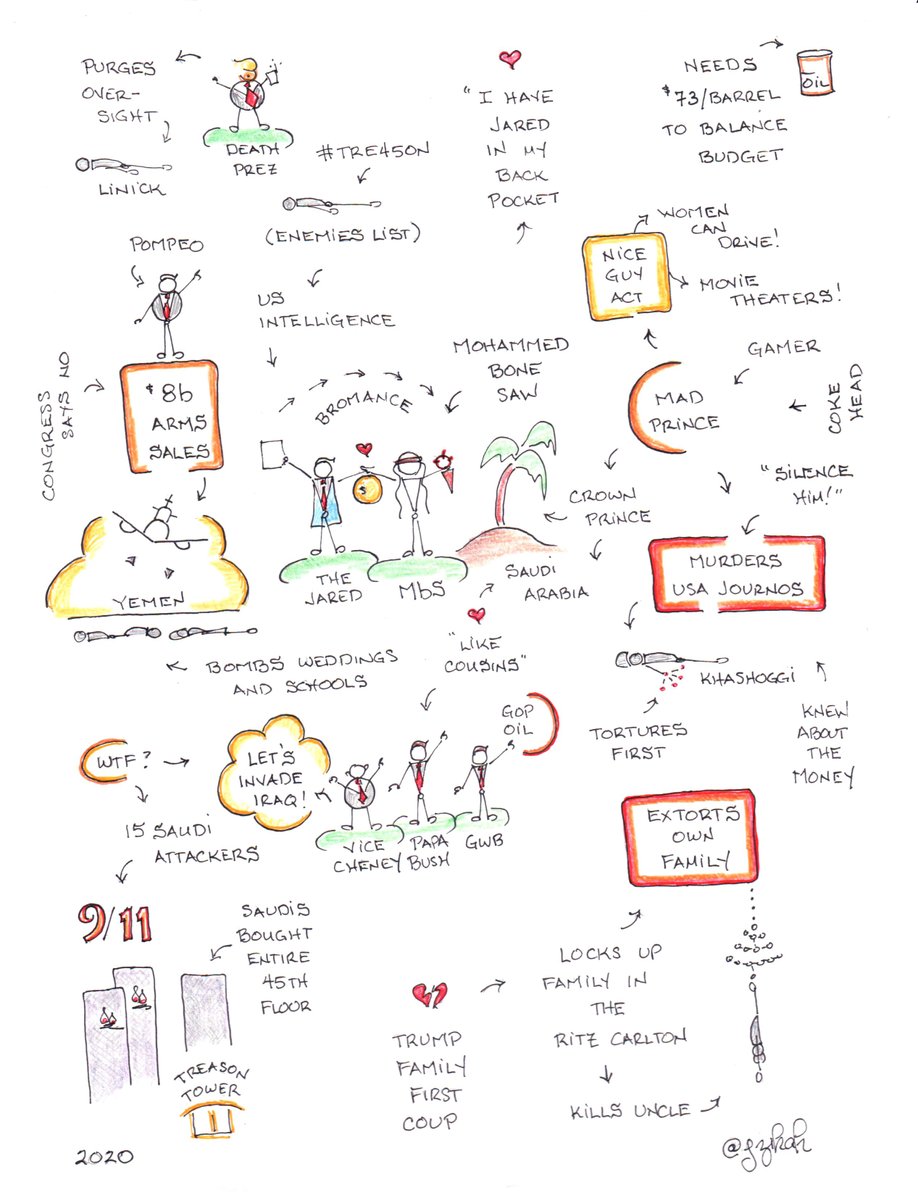 PURGES
OVER-
SIGHT
LINICK
DEATH
PREZ
#TRE45ON
(ENEMIES LIST)
US
INTELLIGENCE
"I HAVE
JARED
IN MY
BACK
POCKET
NEEDS
$73/BARREL
TO BALANCE
BUDGET
OIL
WOMEN
CAN
DRIVE!
NICE
GUY
ACT
MOVIE
THEATERS!
POMPEO
CONGRESS
SAYS NO
$8b
ARMS
SALES
BROMANCE
MOHAMMED
BONE
SAW
GAMER
MAD
PRINCE
COKE
HEAD
"SILENCE
HIM!"
CROWN
PRINCE
$
THE
JARED
MbS
SAUDI
ARABIA
MURDERS
USA JOURNOS
YEMEN
BOMBS WEDDINGS
AND SCHOOLS
"LIKE
COUSINS"
KHASHOGGI
TORTURES
FIRST
KNEW
ABOUT
THE
MONEY
GOP
OIL
WTF?
LET'S
INVADE
IRAQ!
VICE
CHENEY
PAPA
BUSH
GWB
15 SAUDI
ATTACKERS
9/11
SAUDIS
BOUGHT
ENTIRE
45TH
FLOOR
TREASON
TOWER
EXTORTS
OWN
FAMILY
TRUMP
FAMILY
FIRST
COUP
LOCKS UP
FAMILY IN
THE
RITZ CARLTON
KILLS UNCLE
2020